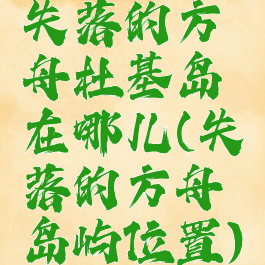 失落的方
舟杜基岛
在哪儿(失
落的方舟
岛屿位置)